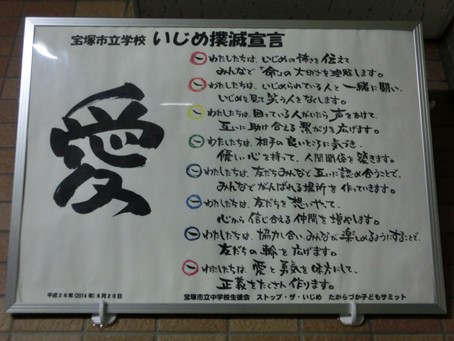 宝塚市立学校 いじめ撲滅宣言
愛
一 わたしたちは、いじめの怖さを伝えて
みんなで「命」の大切さを理解します。
一 わたしたちは、いじめられている人と一緒に闘い、
いじめを見て笑う人をなくします。
一 わたしたちは、困っている人がいたら声をかけて
互いに助け合える繋がりを広げます。
一 わたしたちは、相手の良いところに気づき
優しい心を持って、人間関係を築きます。
一 わたしたちは、友だちみんなと互いに認め合うことで、
みんなでがんばれる場所を作っていきます。
一 わたしたちは、友だちを想いやって、
心から信じ合える仲間を増やします。
一 わたしたちは、協力し合い、みんなが楽しめるようにすることで、
友だちの輪を広げます。
一 わたしたちは、愛と勇気を味方にして、
正義をたくさん作ります。
平成26年(2014年)8月28日
宝塚市立中学校生徒会 ストップ・ザ・いじめ たからづか子どもサミット